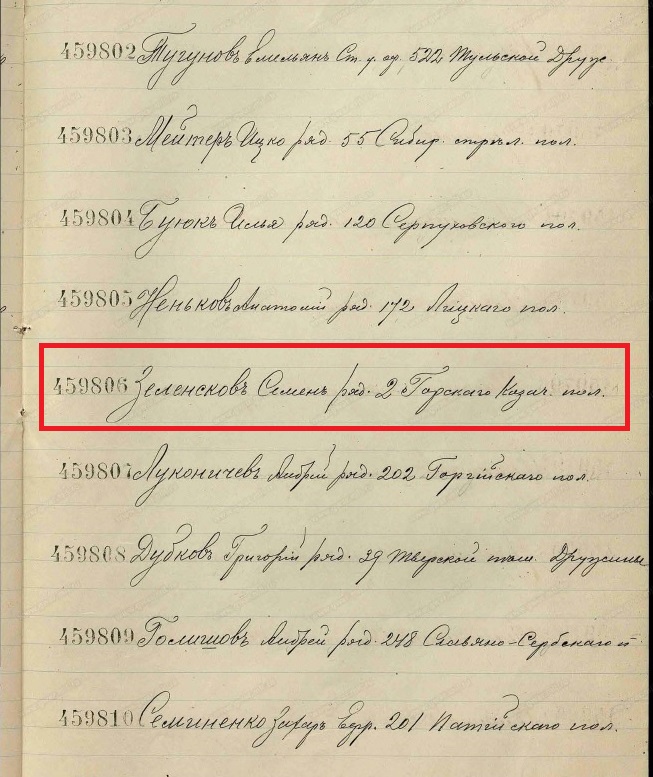 459802 Тугуновъ Емельянъ Ст. у. оф. 522 Тульской Друж.
459803 Мейтеръ Ицко ряд. 55 Сибир. стрѣл. пол.
459804 Буюкъ Илья ряд. 120 Серпуховского пол.
459805 Неньковъ Анатолій ряд. 172 Лидскаго пол.
459806 Зеленсковъ Семенъ ряд. 2 Горскаго Козач. пол.
459807 Луконичевъ Андрей ряд. 202 Горгійскаго пол.
459808 Дубковъ Григорій ряд. 39 Тверской Дружины
459809 Голишовъ Андрей ряд. 248 Славяно-Сербскаго п
459810 Семиненко Захаръ Ефр. 201 Потійскаго пол.